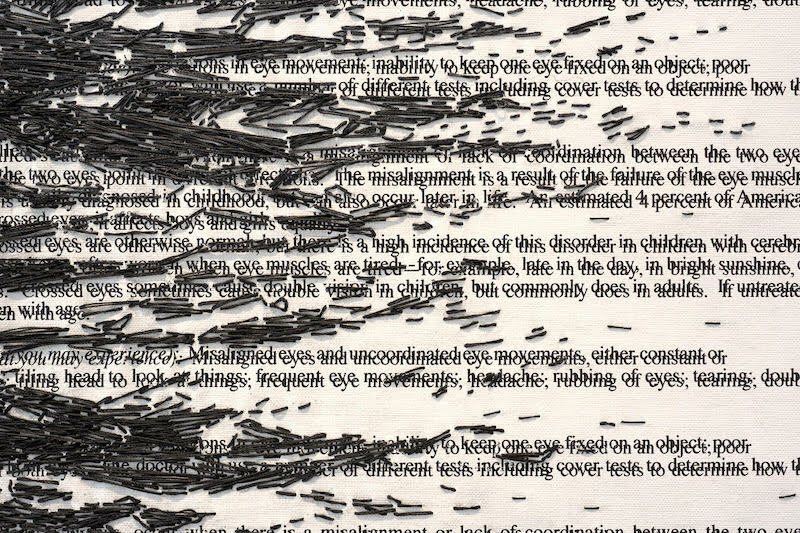 movements, headache, rubbing of eyes; tearing; doub
ions in eye movement; inability to keep one eye fixed on an object; poor
will use a number of different tests including cover tests to determine how th
a misalignment or lack of coordination between the two eye
the two eyes point in The misalignment is a result of the failure of the eye muscle
diagnosed in childhood, but can also occur later in life. An estimated 4 percent of America
crossed eyes; it affects boys and girls equally.
ossed eyes are otherwise normal, but there is a high incidence of this disorder in children with cerebr
when eye muscles are tired—for example, late in the day, in bright sunshine, o
s. Crossed eyes sometimes cause double vision in children, but commonly does in adults. If untreate
en with age.
at you may experience): Misaligned eyes and uncoordinated eye movements, either constant or
tilting head to look at things; frequent eye movements; headache; rubbing of eyes; tearing; doub
ions in eye movement; inability to keep one eye fixed on an object; poor
the doctor will use a number of different tests including cover tests to determine how th
occur when there is a misalignment or lack of coordination between the two eye